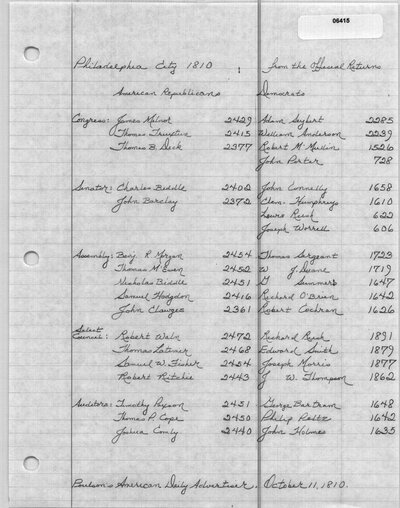 06415
Philadelphia City 1810 : from the Official Returns
American Republicans Democrats
Congress: James Milnor 2429 Adam Seybert 2285
Thomas Truxtun 2415 William Anderson 2239
Thomas B. Dick 2377 Robert McMullin 1526
John Porter 728
Senator: Charles Biddle 2402 John Connelly 1658
John Barclay 2372 Clem. Humphreys 1610
Lewis Rush 622
Joseph Worrell 606
Assembly: Benj. R Morgan 2454 Thomas Sergeant 1723
Thomas McEuen 2452 W J Duane 1719
Nicholas Biddle 2451 G Summers 1647
Samuel Hodgdon 2416 Richard O'Brien 1642
John Clawges 2361 Robert Cochran 1626
Select
Council: Robert Waln 2472 Richard Rush 1891
Thomas Latimer 2468 Edward Smith 1879
Samuel W. Fisher 2454 Joseph Morris 1877
Robert Ritchie 2443 J W. Thompson 1862
Auditors: Timothy Paxson 2451 George Bartram 1648
Thomas P. Cope 2450 Philip Peltz 1642
Joshua Comly 2440 John Holmes 1635
Poulson's American Daily Advertiser. October 11, 1810.